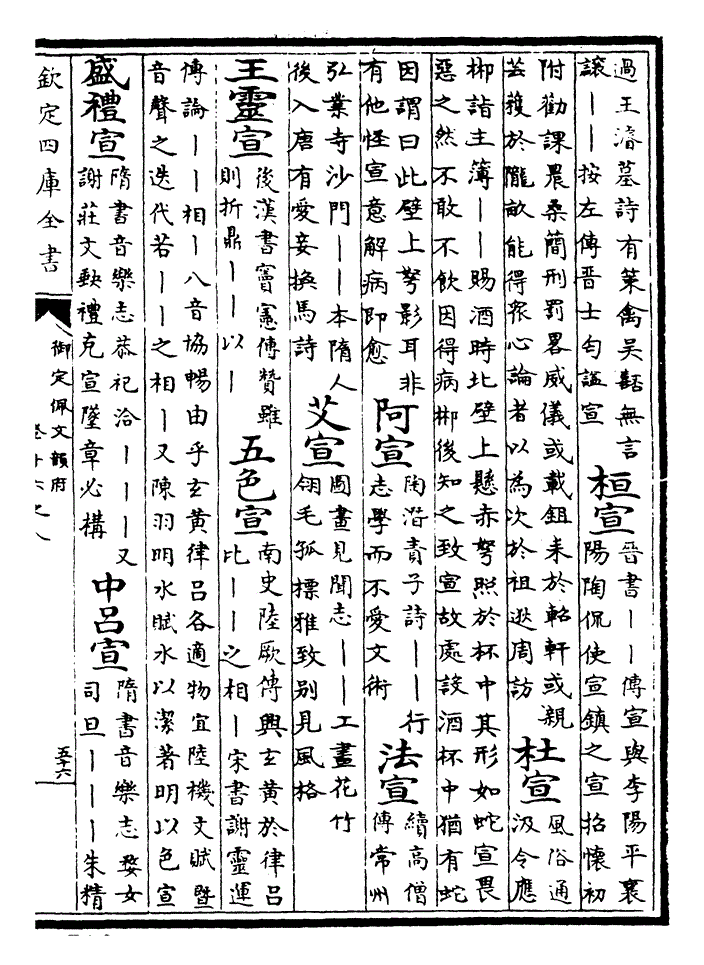 過王濬墓詩有策禽吳嚭無言
譲｜｜按左傳晉士匄謚宣
桓宣
晉書｜｜傳宣與李陽平襄
陽陶侃使宣鎮之宣招懷初
附勸課農桑簡刑罰畧威儀或載鉏耒於軺軒或親
芸穫於隴畝能得衆心論者以為次於祖逖周訪
杜宣
風俗通
汲令應
郴詣主簿｜｜賜酒時北壁上懸赤弩照於杯中其形如蛇宣畏
惡之然不敢不飲因得病郴後知之致宣故處設酒杯中猶有蛇
因謂曰此壁上弩影耳非
有他怪宣意解病即愈
阿宣
陶潛責子詩｜｜行
志學而不愛文術
法宣
續高僧
傳常州
弘業寺沙門｜｜本隋人
後入唐有愛妾換馬詩
艾宣
圖畫見聞志｜｜工畫花竹
翎毛孤標雅致别見風格
王靈宣
後漢書竇憲傳贊雖
則折鼎｜｜以｜
五色宣
南史陸厥傳興玄黃於律呂
比｜｜之相｜宋書謝靈運
傳論｜｜相｜八音協暢由乎玄黃律呂各適物宜陸機文賦暨
音聲之迭代若｜｜之相｜又陳羽明水賦水以潔著明以色宣
盛禮宣
隋書音樂志恭祀洽｜｜｜又
謝莊文 禮克宣墬章必構
中呂宣
隋書音樂志婺女
司旦｜｜｜朱精
欽定四庫全書
御定佩文韻府
卷十六之八
五十六